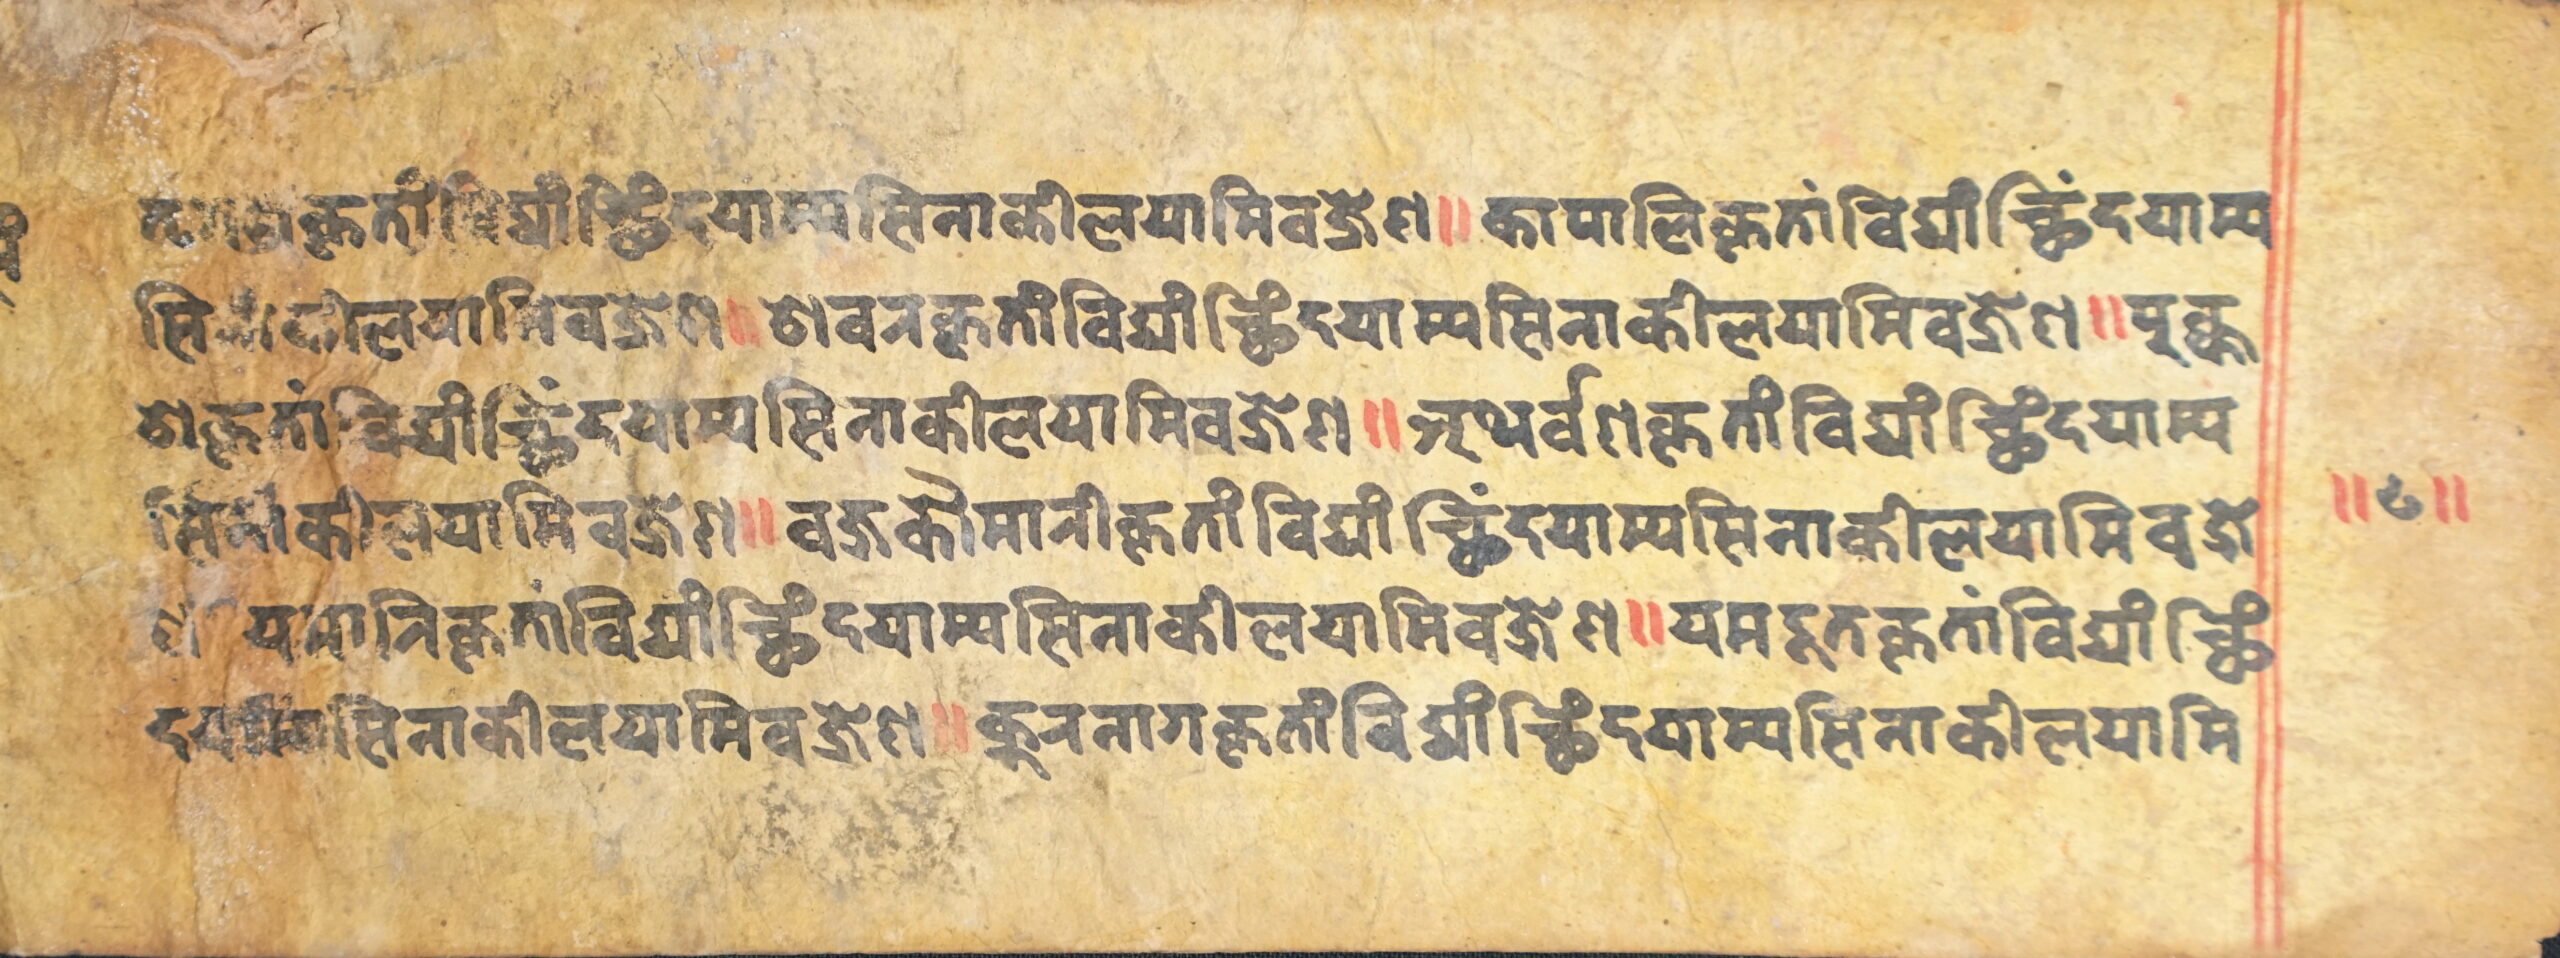 कृतां विद्यां च्छिंदयाम्यसिना कीलयामि वज्रेण ॥ कापालिकृतां विद्यां च्छिंदयाम्य
सिना कीलयामि वज्रेण ॥ शवरकृतां विद्यां च्छिंदयाम्यसिना कीलयामि वज्रेण ॥ पुक्क
शकृतां विद्यां च्छिंदयाम्यसिना कीलयामि वज्रेण ॥ अथर्वणकृतां विद्यां च्छिंदयाम्य
सिना कीलयामि वज्रेण ॥ वज्रकौमारीकृतां विद्यां च्छिंदयाम्यसिना कीलयामि वज्रे
ण यमारिकृतां विद्यां च्छिंदयाम्यसिना कीलयामि वज्रेण ॥ यमदूतकृतां विद्यां च्छिं
दयाम्यसिना कीलयामि वज्रेण ॥ क्रुरनागकृतां विद्यां च्छिंदयाम्यसिना कीलयामि